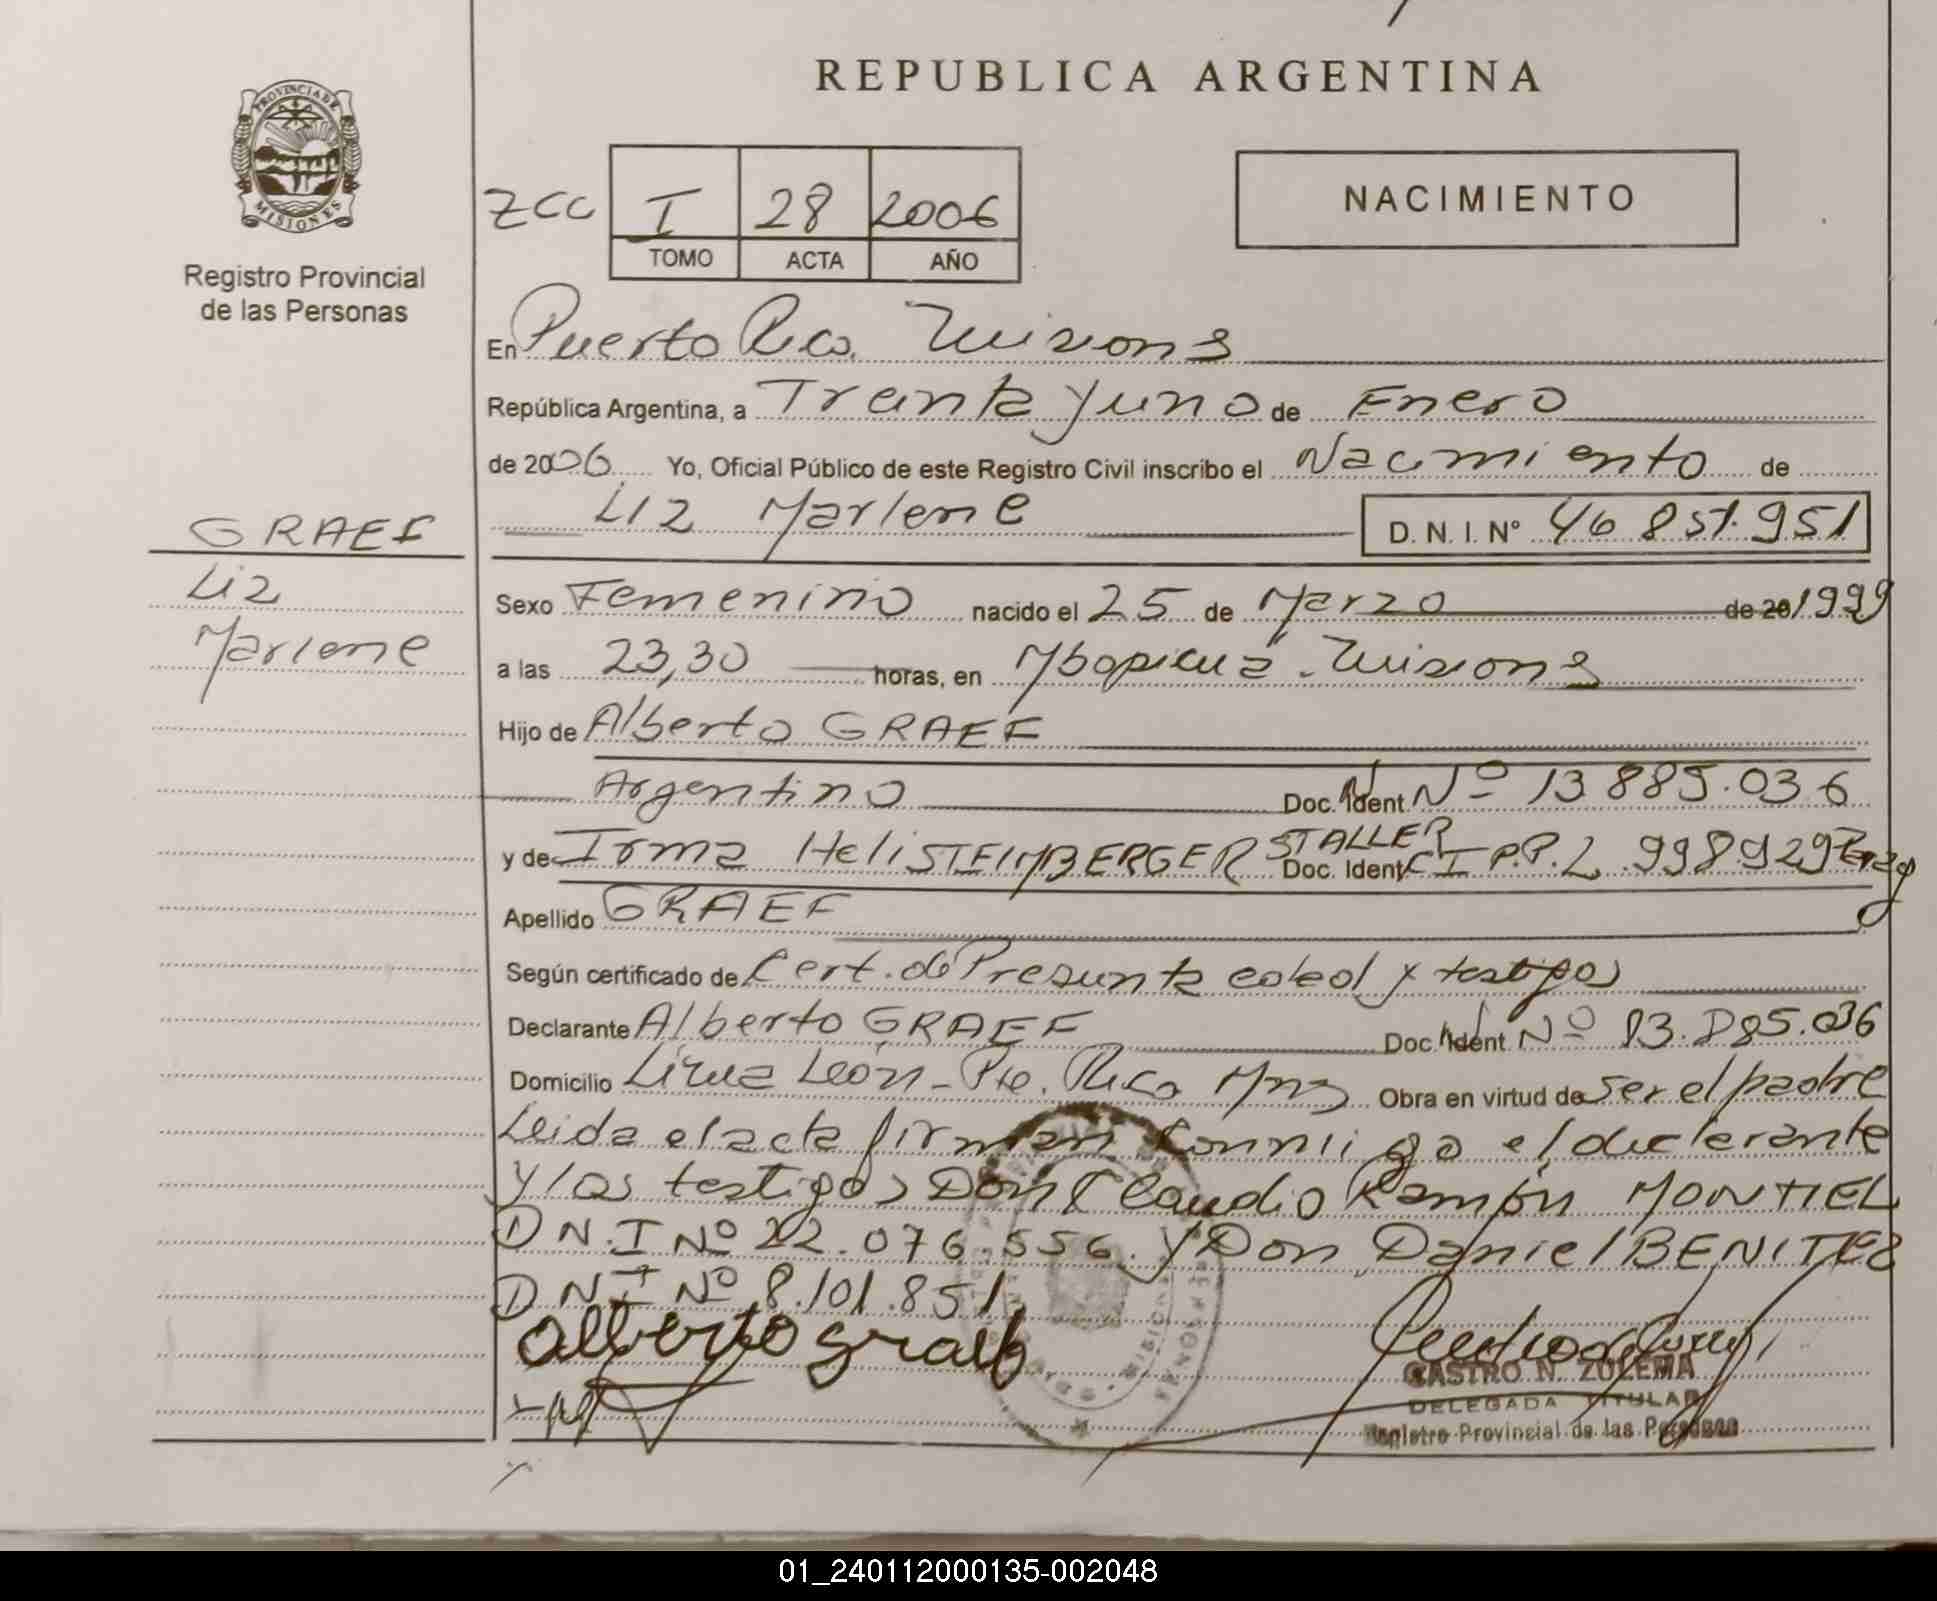 REPUBLICA ARGENTINA
PROVINCIA DE
MISIONES
Registro Provincial
de las Personas
ZCC I 28 2006
TOMO ACTA AÑO
NACIMIENTO
En Puerto Rico. Misiones
República Argentina, a Treinta y uno de Enero
de 2006 Yo, Oficial Público de este Registro Civil inscribo el Nacimiento de
Liz Marlene D. N. I. Nº 46 851.951
GRAEF
Liz
Marlene
Sexo Femenino nacido el 25 de Marzo de 20 1999
a las 23,30 horas, en Mbopicuá. Misiones
Hijo de Alberto GRAEF
Argentino Doc. Ident Nº 13 885.036
y de Irma Heli STEIMBERGER STALLER Doc. Ident C I P.P. 2.998929
Apellido GRAEF
Según certificado de Cert. de Presunta edad y testigos
Declarante Alberto GRAEF Doc. Ident Nº 13.885.036
Domicilio Línea León - Pto. Rico Mnes Obra en virtud de ser el padre
Leida el acta firman conmigo el declarante
y los testigos Don Claudio Ramón MONTIEL
D N.I Nº 22.076.556. y Don Daniel BENITEZ
D N I Nº 8.101.851
alberto graef
CASTRO N. ZULEMA
DELEGADA TITULAR
Registro Provincial de las Personas
01_240112000135-002048